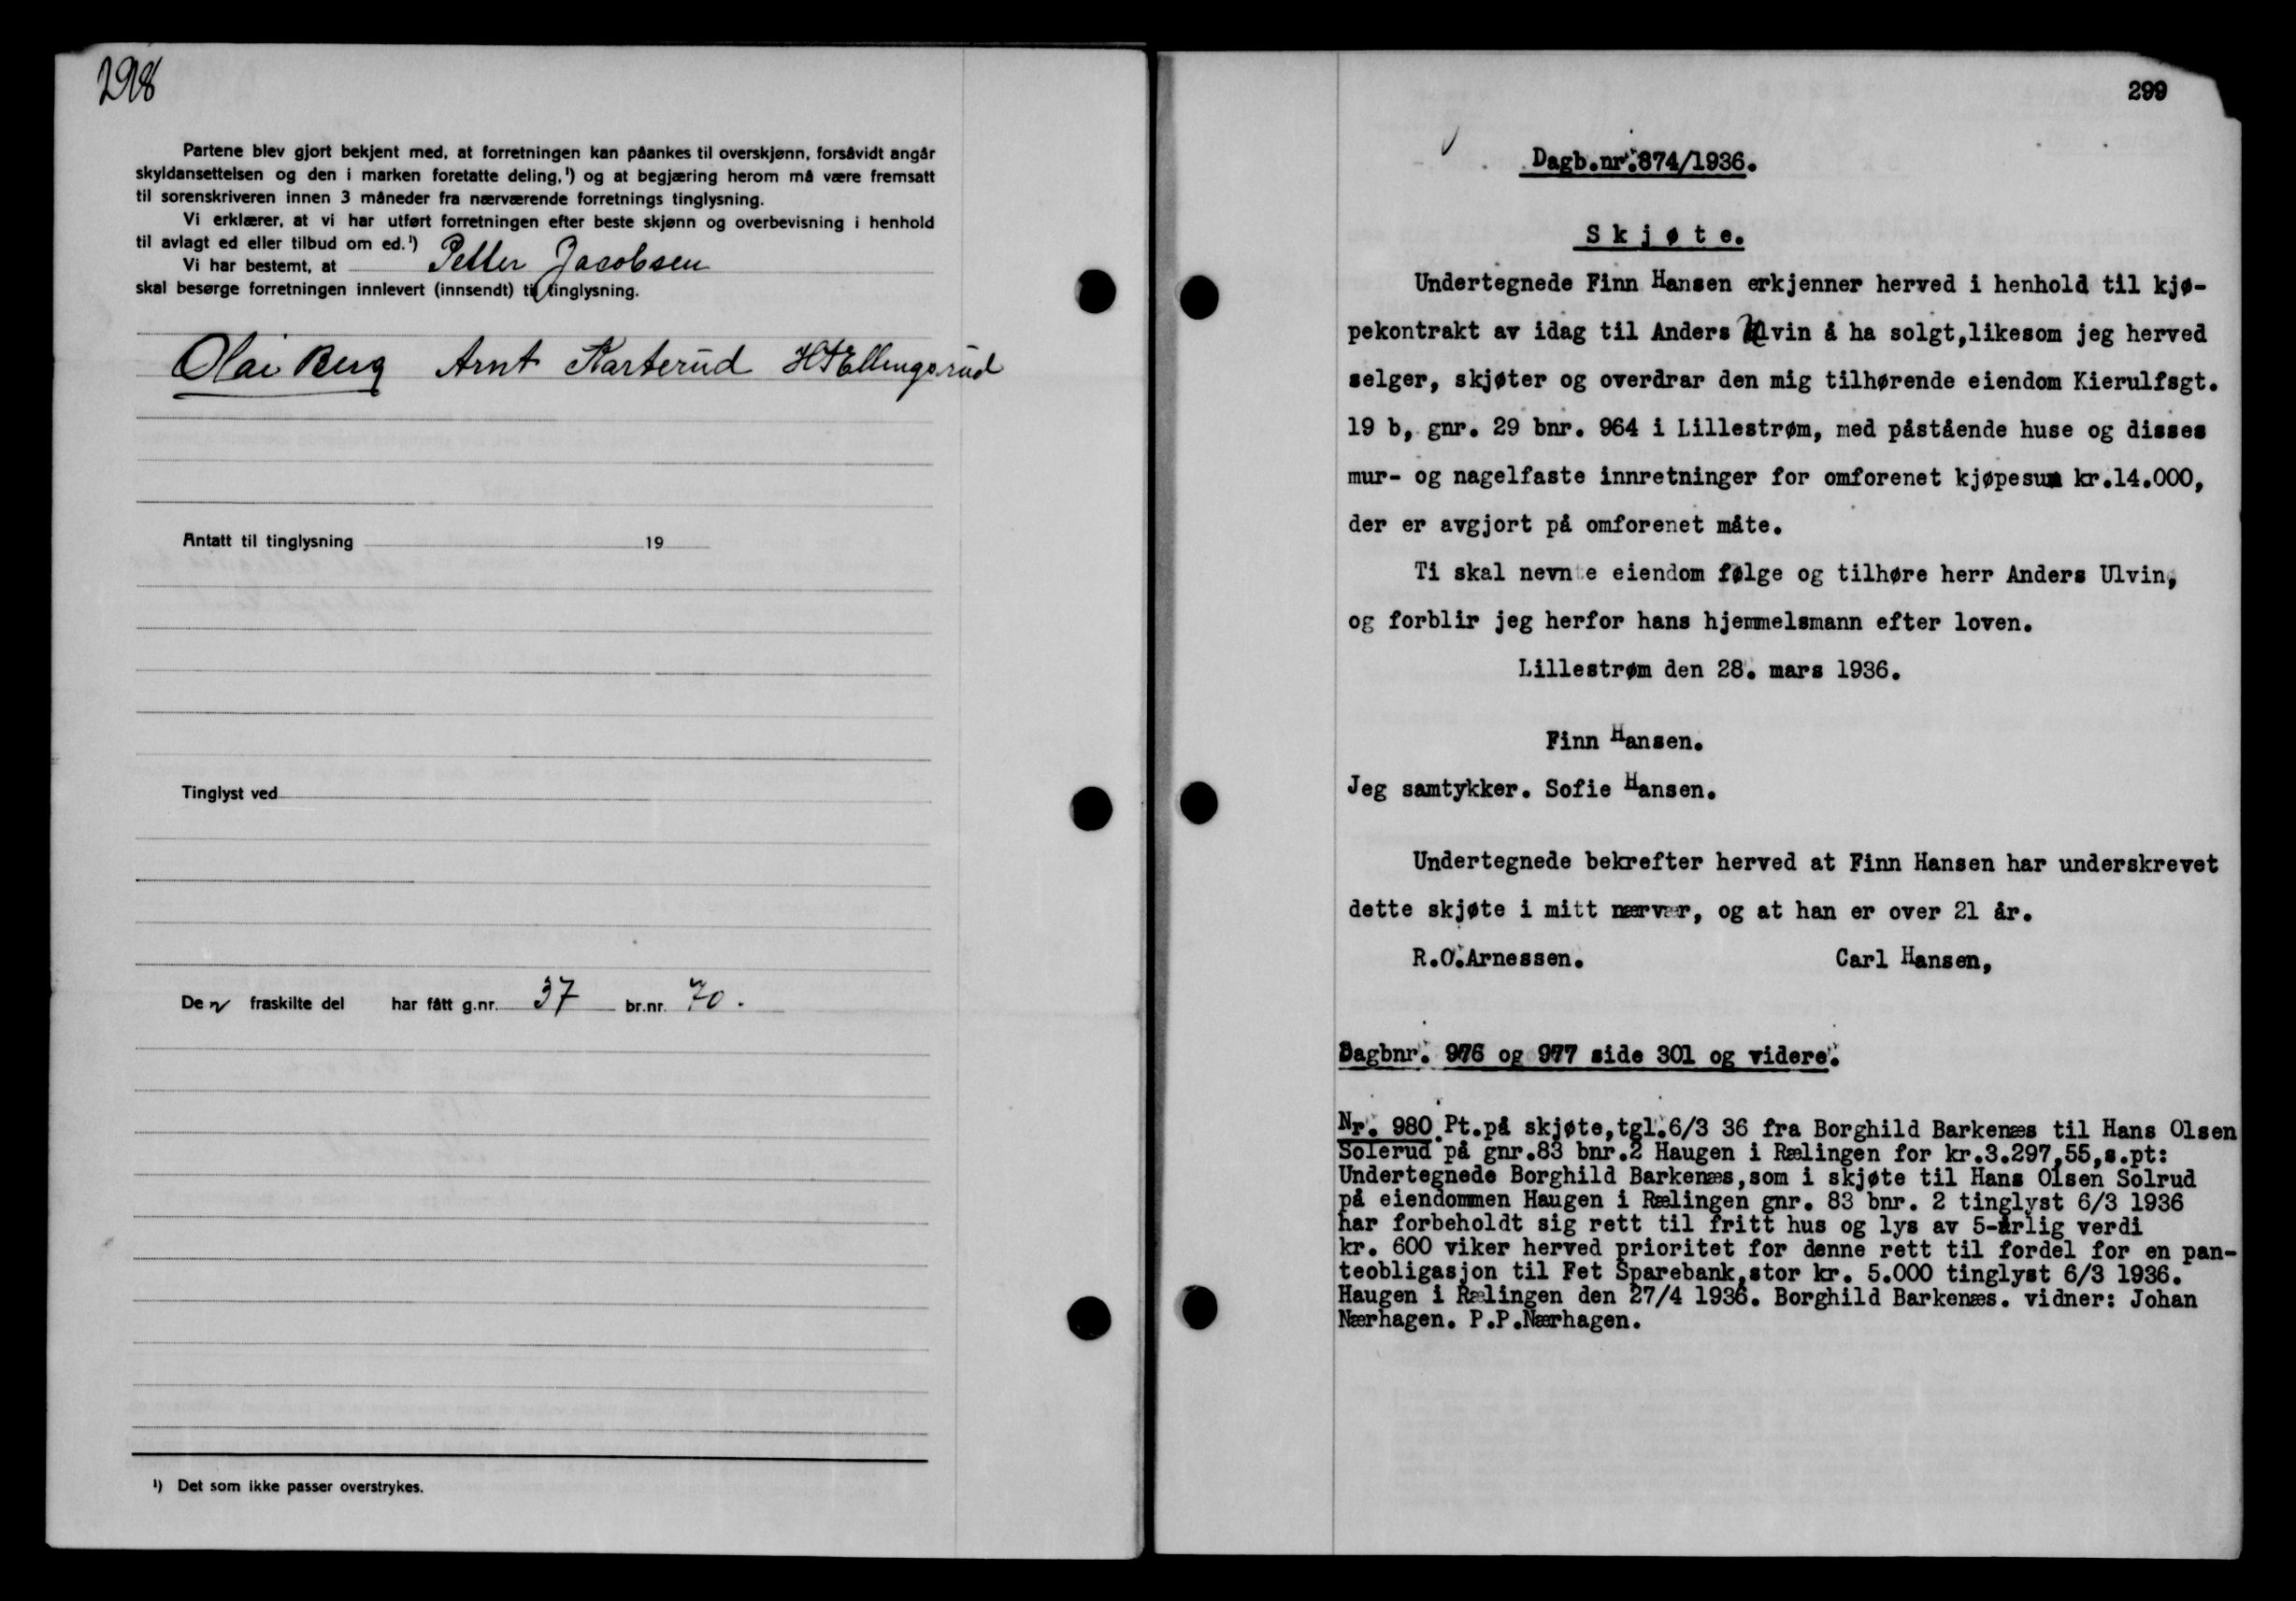 298
Partene blev gjort bekjent med, at forretningen kan påankes til overskjønn, forsåvidt angår
skyldansettelsen og den i marken foretatte deling,¹) og at begjæring herom må være fremsatt
til sorenskriveren innen 3 måneder fra nærværende forretnings tinglysning.
Vi erklærer, at vi har utført forretningen efter beste skjønn og overbevisning i henhold
til avlagt ed eller tilbud om ed.¹)
Vi har bestemt, at Petter Jacobsen
skal besørge forretningen innlevert (innsendt) til tinglysning.
Olai Berg Arnt Karterud H Ellingsrud
Antatt til tinglysning 19
Tinglyst ved
Den fraskilte del har fått g.nr. 37 br.nr. 70.
¹) Det som ikke passer overstrykes.
299
Dagb.nr.874/1936.
Skjøte.
Undertegnede Finn Hansen erkjenner herved i henhold til kjø-
pekontrakt av idag til Anders Ulvin å ha solgt,likesom jeg herved
selger, skjøter og overdrar den mig tilhørende eiendom Kierulfsgt.
19 b, gnr. 29 bnr. 964 i Lillestrøm, med påstående huse og disses
mur- og nagelfaste innretninger for omforenet kjøpesum kr.14.000,
der er avgjort på omforenet måte.
Ti skal nevnte eiendom følge og tilhøre herr Anders Ulvin,
og forblir jeg herfor hans hjemmelsmann efter loven.
Lillestrøm den 28. mars 1936.
Finn Hansen.
Jeg samtykker. Sofie Hansen.
Undertegnede bekrefter herved at Finn Hansen har underskrevet
dette skjøte i mitt nærvær, og at han er over 21 år.
R.O.Arnessen. Carl Hansen,
Dagbnr. 976 og 977 side 301 og videre.
Nr. 980. Pt.på skjøte,tgl.6/3 36 fra Borghild Barkenæs til Hans Olsen
Solerud på gnr.83 bnr.2 Haugen i Rælingen for kr.3.297,55,s.pt:
Undertegnede Borghild Barkenæs,som i skjøte til Hans Olsen Solrud
på eiendommen Haugen i Rælingen gnr. 83 bnr. 2 tinglyst 6/3 1936
har forbeholdt sig rett til fritt hus og lys av 5-årlig verdi
kr. 600 viker herved prioritet for denne rett til fordel for en pan-
teobligasjon til Fet Sparebank,stor kr. 5.000 tinglyst 6/3 1936.
Haugen i Rælingen den 27/4 1936. Borghild Barkenæs. vidner: Johan
Nærhagen. P.P.Nærhagen.